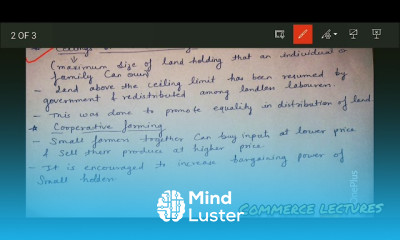 2 OF 3
* Ceilings
(maximum size of land holding that an individual &
family can own)
- Land above the ceiling limit has been resumed by
government & redistributed among landless labourers.
- This was done to promote equality in distribution of land.
* Cooperative farming
- Small farmers together can buy inputs at lower price
& sell their produce at higher price.
- It is encouraged to increase bargaining power of
small holders
Mind
Luster
COMMERCE LECTURES